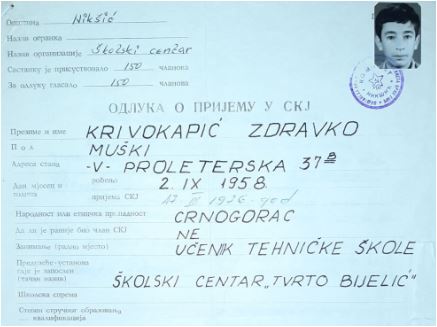 Општина Nikšić
Назив огранка
Назив организације Školski centar
Састанку је присуствовало 150 чланова
За одлуку гласало 150 чланова
ОДЛУКА О ПРИЈЕМУ У СКЈ
Презиме и име KRIVOKAPIĆ ZDRAVKO
Пол MUŠKI
Адреса стана -V- PROLETERSKA 37
Дан мјесец и година рођења 2. IX 1958.
пријема СКЈ 1976. god
Народност или етничка припадност CRNOGORAC
Да ли је раније био члан СКЈ NE
Занимање (радно мјесто) UČENIK TEHNIČKE ŠKOLE
Предузеће-установа
гдје је запослен
(тачан назив) ŠKOLSKI CENTAR „TVRTO BIJELIĆ"
Школска спрема
Степен стручног образовања
квалификација